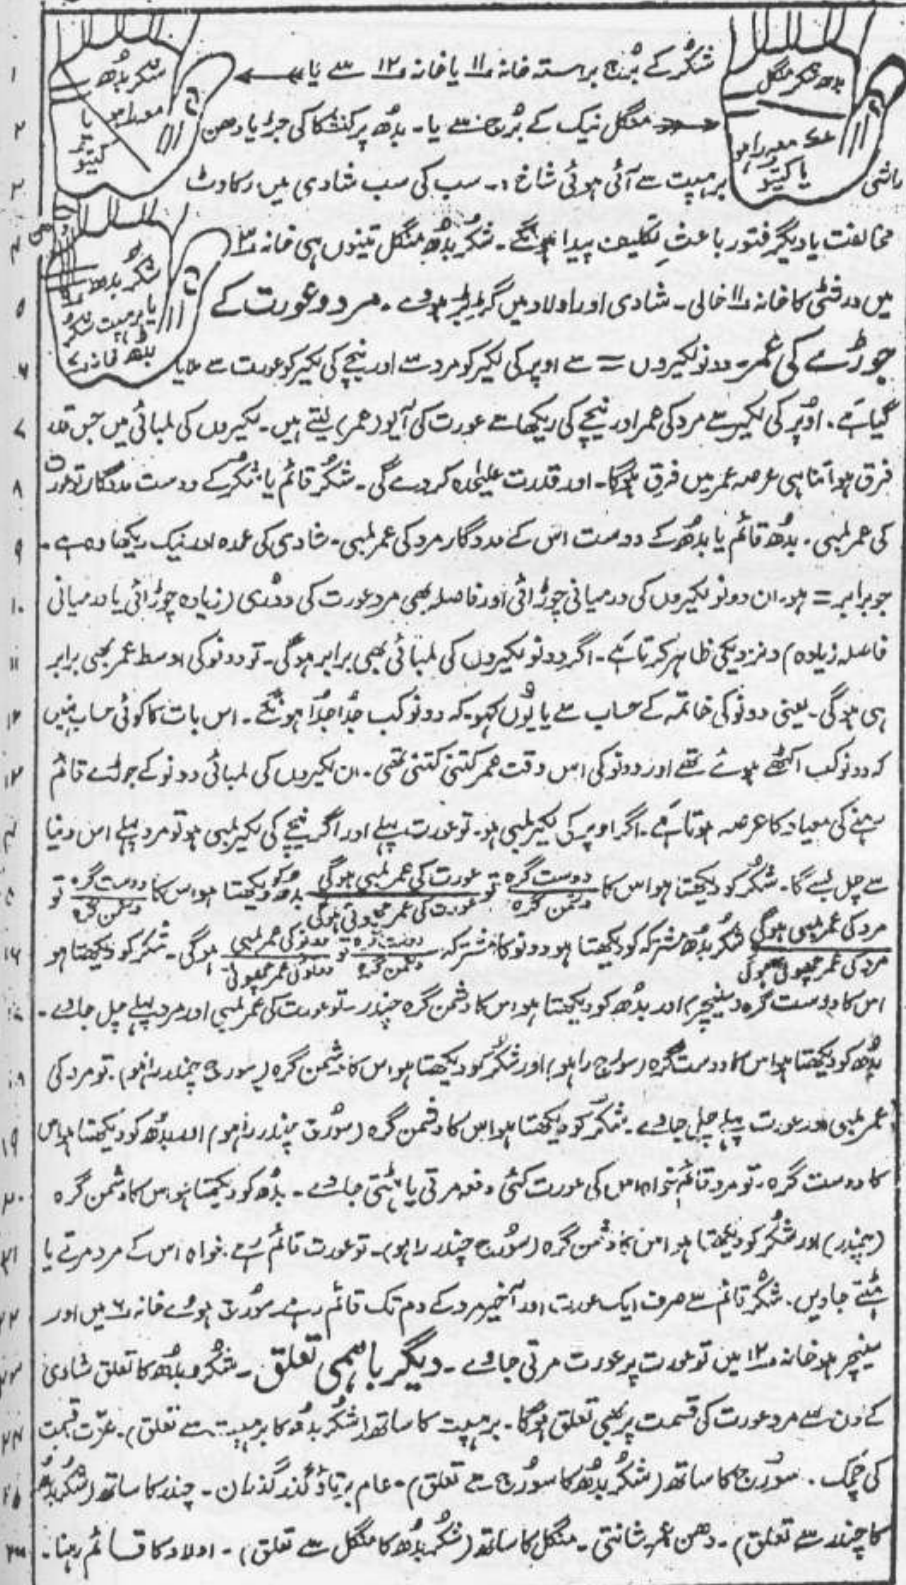 شکر کے بُرج برستہ خانہ نمبر ۱۱ یا خانہ نمبر ۱۲ سے یا
منگل نیک کے بُرج سے یا۔ بدھ پر کنشکا کی جڑ یا دھن
راشی برہسپت سے آئی ہوئی شاخ :۔ سب کی سب شادی میں رکاوٹ
مخالفت یا دیگر فتور باعثِ تکلیف پیدا ہونگے۔ شکر بدھ منگل تینوں ہی خانہ نمبر ۳
میں درشٹی کا خانہ نمبر ۱۱ خالی۔ شادی اور اولاد میں گڑبڑ ہووے۔ مرد و عورت کے
جوڑے کی عمر۔ دونو لکیروں = سے اوپر کی لکیر کو مرد سے اور نیچے کی لکیر کو عورت سے ملایا
گیا ہے۔ اوپر کی لکیر سے مرد کی عمر اور نیچے کی ریکھا سے عورت کی آیو (عمر) لیتے ہیں۔ لکیروں کی لمبائی میں جس قدر
فرق ہو اتنا ہی عرصہ عمر میں فرق ہوگا۔ اور قدرت علیحدہ کر دے گی۔ شکر قائم یا شکر کے دوست مددگار تو عورت
کی عمر لمبی۔ بدھ قائم یا بدھ کے دوست اس کے مددگار مرد کی عمر لمبی۔ شادی کی عمدہ اور نیک ریکھا وہ ہے۔
جو برابر = ہو۔ ان دونو لکیروں کی درمیانی چوڑائی اور فاصلہ بھی مرد عورت کی دوری (زیادہ چوڑائی یا درمیانی
فاصلہ زیادہ) و نزدیکی ظاہر کرتا ہے۔ اگر دونو لکیروں کی لمبائی بھی برابر ہوگی۔ تو دونو کی اوسط عمر بھی برابر
ہی ہوگی۔ یعنی دونو کی خاتمہ کے حساب سے یا یوں کہو۔ کہ دونو کب جُدا جُدا ہونگے۔ اس بات کا کوئی حساب نہیں
کہ دونو کب اکٹھے ہوئے تھے اور دونو کی اس وقت عمر کتنی کتنی تھی۔ ان لکیروں کی لمبائی دونو کے جوڑے قائم
رہنے کی میعاد کا عرصہ ہوتا ہے۔ اگر اوپر کی لکیر لمبی ہو۔ تو عورت پہلے اور اگر نیچے کی لکیر لمبی ہو تو مرد پہلے اس دنیا
سے چل بسے گا۔ شکر کو دیکھتا ہو اس کا دوست گرہ / دشمن گرہ تو عورت کی عمر لمبی ہوگی / عورت کی عمر چھوٹی ہوگی بدھ کو دیکھتا ہو اس کا دوست گرہ / دشمن گرہ تو
مرد کی عمر لمبی ہوگی / مرد کی عمر چھوٹی ہوگی شکر بدھ مشترکہ کو دیکھتا ہو دونو کا مشترکہ دوست گرہ / دشمن گرہ تو دونو کی عمر لمبی / دونو کی عمر چھوٹی ہوگی۔ شکر کو دیکھتا ہو
اس کا دوست گرہ (سنیچر) اور بدھ کو دیکھتا ہو اس کا دشمن گرہ چندر۔ تو عورت کی عمر لمبی اور مرد پہلے چل جاوے۔
بدھ کو دیکھتا ہو اس کا دوست گرہ (سورج راہو) اور شکر کو دیکھتا ہو اس کا دشمن گرہ (سورج چندر راہو)۔ تو مرد کی
عمر لمبی اور عورت پہلے چل جاوے۔ شکر کو دیکھتا ہو اس کا دشمن گرہ (سورج چندر راہو) اور بدھ کو دیکھتا ہو اس
کا دوست گرہ۔ تو مرد قائم خواہ اس کی عورت کئی دفعہ مرتی یا ہٹتی جاوے۔ بدھ کو دیکھتا ہو اس کا دشمن گرہ
(چندر) اور شکر کو دیکھتا ہو اس کا دشمن گرہ (سورج چندر راہو)۔ تو عورت قائم رہے۔ خواہ اس کے مرد مرتے یا
ہٹتے جاویں۔ شکر قائم سے صرف ایک عورت اور آخیر مرد کے دم تک قائم رہے۔ سورج ہووے خانہ نمبر ۶ میں اور
سنیچر ہو خانہ نمبر ۱۲ میں تو عورت پر عورت مرتی جاوے۔ دیگر باہمی تعلق۔ شکر و بدھ کا تعلق شادی
کے دن سے مرد عورت کی قسمت پر بھی تعلق ہوگا۔ برہسپت کا ساتھ (شکر بدھ کا برہسپت سے تعلق)۔ عزت قسمت
کی چمک۔ سورج کا ساتھ (شکر بدھ کا سورج سے تعلق)۔ عام برتاؤ گذر گذران۔ چندر کا ساتھ (شکر بدھ
کا چندر سے تعلق)۔ دھن عمر شانتی۔ منگل کا ساتھ (شکر بدھ کا منگل سے تعلق)۔ اولاد کا قائم رہنا۔